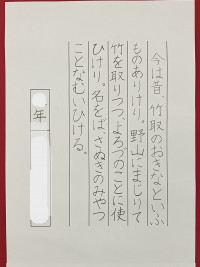 今は昔、竹取のおきなといふ
ものありけり。野山にまじりて
竹を取りつつ、よろづのことに使
ひけり。名をば、さぬきのみやつ
ことなむいひける。
年